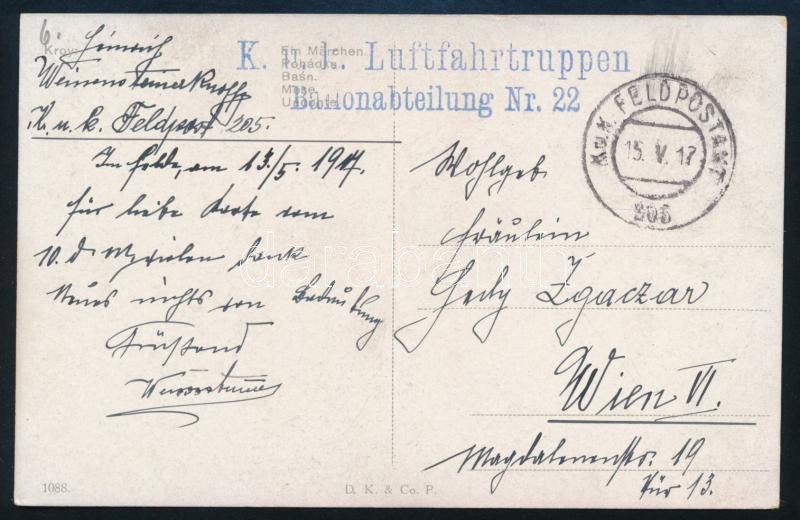 6.
K. u. k. Luftfahrtruppen
Ballonabteilung Nr. 22
Ein Märchen.
Pohádka.
Baśń.
Mese.
Heinrich
K. u. k. Feldpost 205.
Im Felde, am 13./5. 1917.
für liebe Karte vom
10. d. M. vielen Dank
Neues nichts von Bedeutung
Grüßend
K.u.K. FELDPOSTAMT
15. V. 17
205
Wohlgeb.
Fräulein
Hedy Zgaczar
Wien VI.
Magdalenenstr. 19
Tür 13.
1088.
D. K. & Co. P.
darabanth